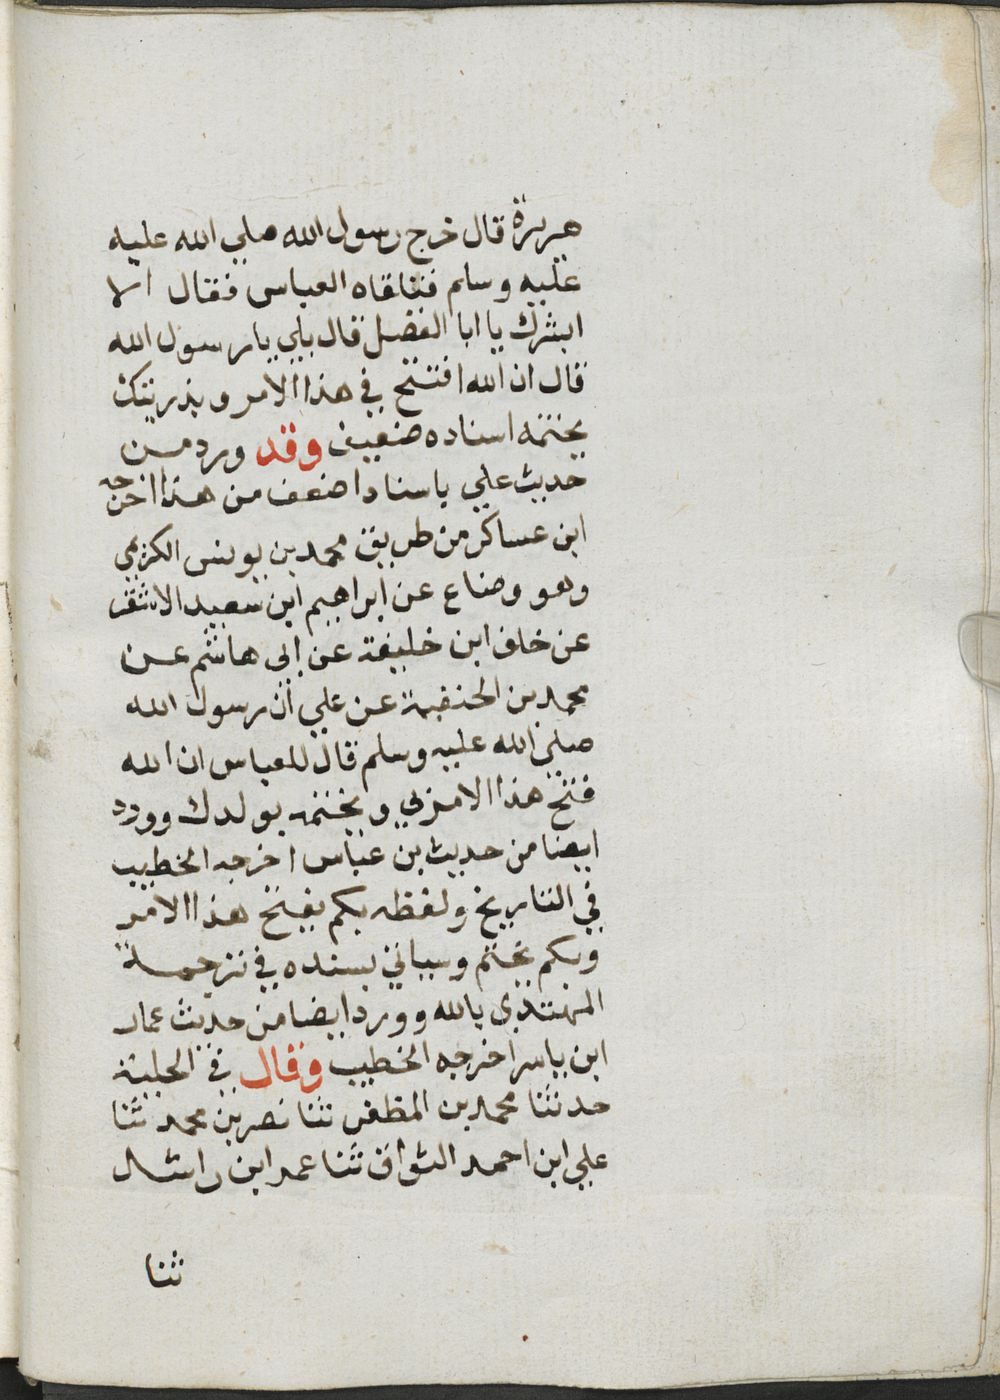 هريرة قال خرج رسول الله صلي الله عليه
عليه وسلم فتلقاه العباس فقال الا
ابشرك يا ابا الفضل قال بلي يا رسول الله
قال ان الله افتتح في هذا الامر وبذريتك
يختمه اسناده ضعيف وقد ورد من
حديث علي باسناد اضعف من هذا اخرجه
ابن عساكر من طريق محمد بن يونس الكريمي
وهو وضاع عن ابراهيم ابن سعيد الاشقر
عن خلف ابن خليفة عن ابي هاشم عن
محمد بن الحنفية عن علي ان رسول الله
صلى الله عليه وسلم قال للعباس ان الله
فتح هذا الامر بي ويختمه بولدك وورد
ايضا من حديث بن عباس اخرجه الخطيب
في التاريخ ولفظه بكم يفتح هذا الامر
وبكم يختم وسياتي بسنده في ترجمة
المهتدي بالله وورد ايضا من حديث عمار
ابن ياسر اخرجه الخطيب وقال في الحلية
حدثنا محمد بن المظفر ثنا نصر بن محمد ثنا
علي ابن احمد السواق ثنا عمر ابن راشد
ثنا